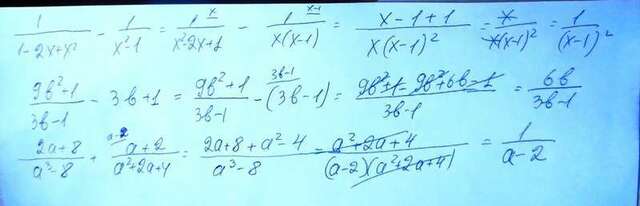 1/(1-2x+x²) - 1/(x²-1) = 1^x/(x²-2x+1) - 1^(x-1)/(x(x-1)) = (x-1+1)/(x(x-1)²) = x/(x(x-1)²) = 1/(x-1)²
(9b²+1)/(3b-1) - 3b+1 = (9b²+1)/(3b-1) - (3b-1)^(3b-1) = (9b²+1-9b²+6b-1)/(3b-1) = 6b/(3b-1)
(2a+8)/(a³-8) + (a+2)^(a-2)/(a²+2a+4) = (2a+8+a²-4)/(a³-8) = (a²+2a+4)/((a-2)(a²+2a+4)) = 1/(a-2)